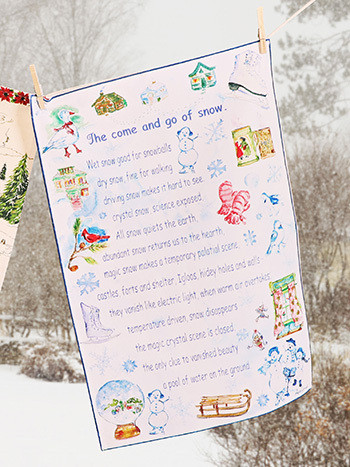 The come and go of snow.
Wet snow good for snowballs
dry snow, fine for walking
driving snow makes it hard to see,
crystal snow, science exposed.
All snow quiets the earth,
abundant snow returns us to the hearth.
magic snow makes a temporary palatial scene,
castles, forts and shelter. Igloos, hidey holes and wells
they vanish like electric light, when warm air overtakes.
temperature driven, snow disappears
the magic crystal scene is closed.
the only clue to vanished beauty
a pool of water on the ground.